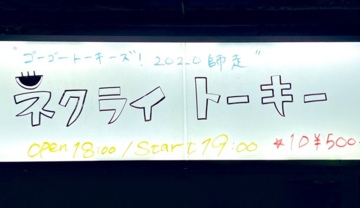 "ゴーゴートーキーズ"! 2020 師走"
ネクライトーキー
Open 18:00 / Start 19:00 *1D ¥500-